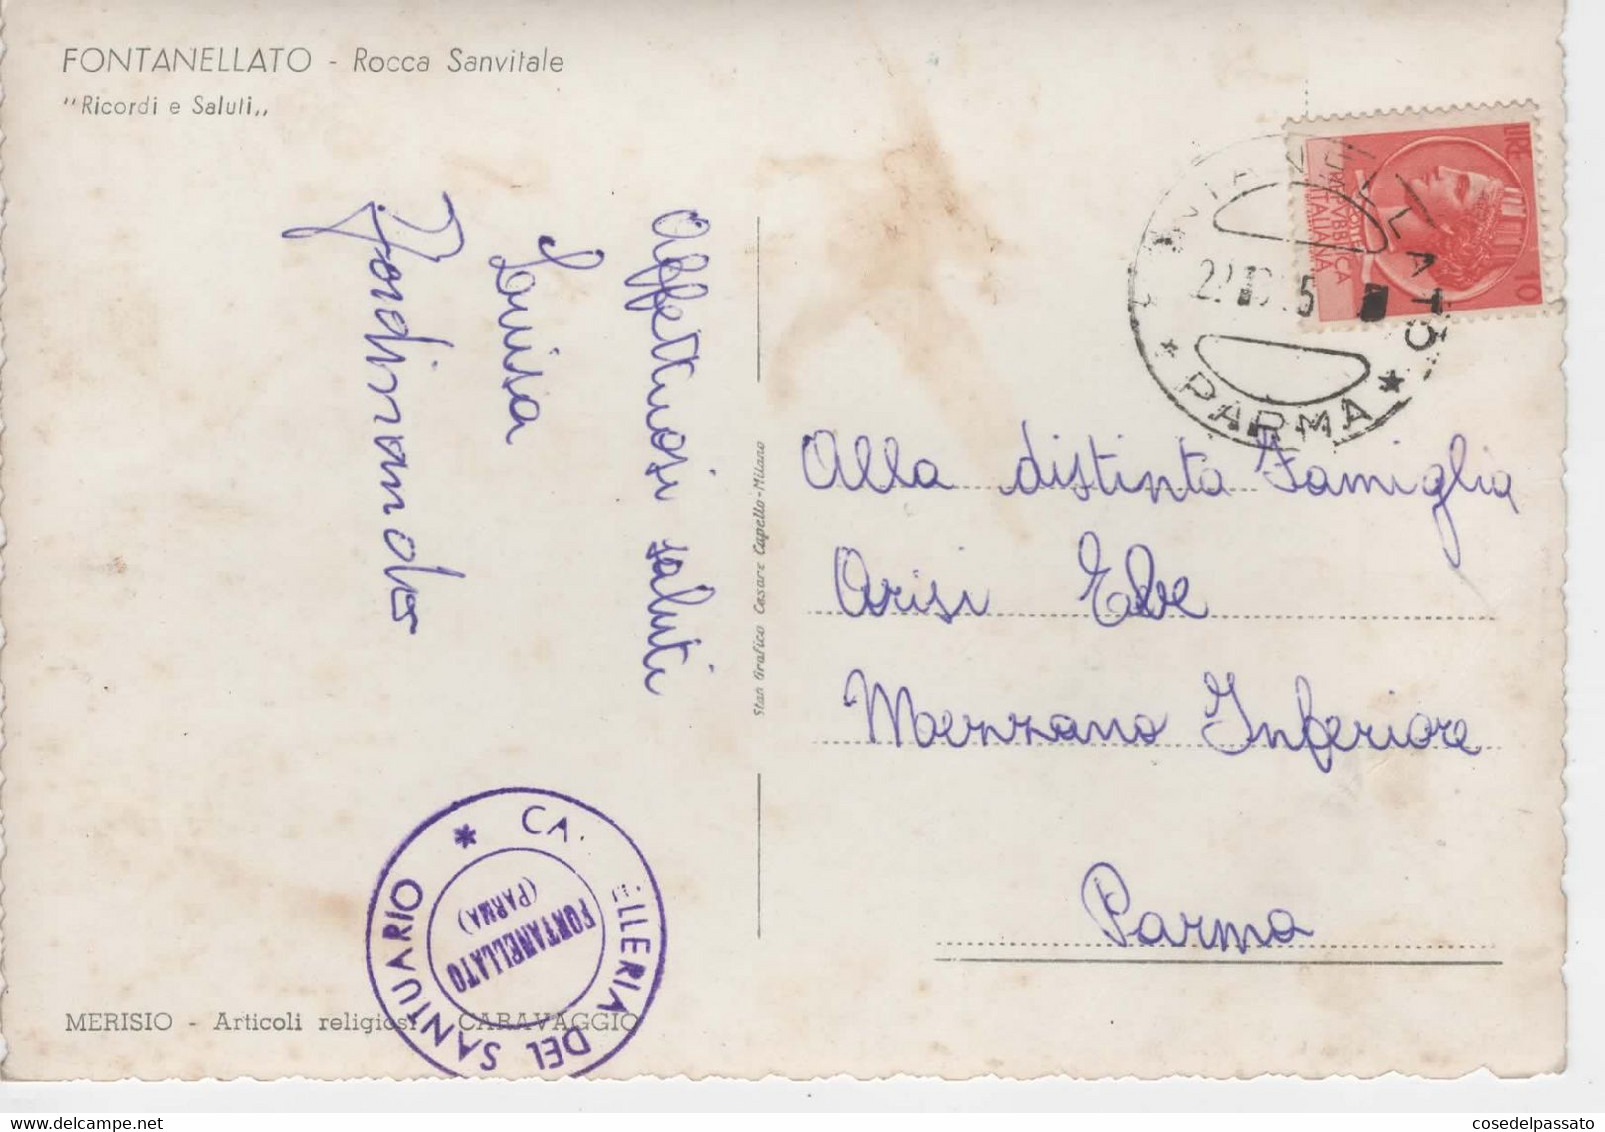 FONTANELLATO - Rocca Sanvitale
"Ricordi e Saluti,,
Affettuosi saluti
Luisa
Ferdinando
Stan Grafico Cesare Capello-Milano
LIRE 10
REPVBBLICA
ITALIANA
FONTANELLATO
* PARMA *
Alla distinta Famiglia
Arisi Ebe
Mezzano Inferiore
Parma
* CA. ELLERIA DEL SANTUARIO
FONTANELLATO
(PARMA)
MERISIO - Articoli religiosi - CARAVAGGIO
cosedelpassato